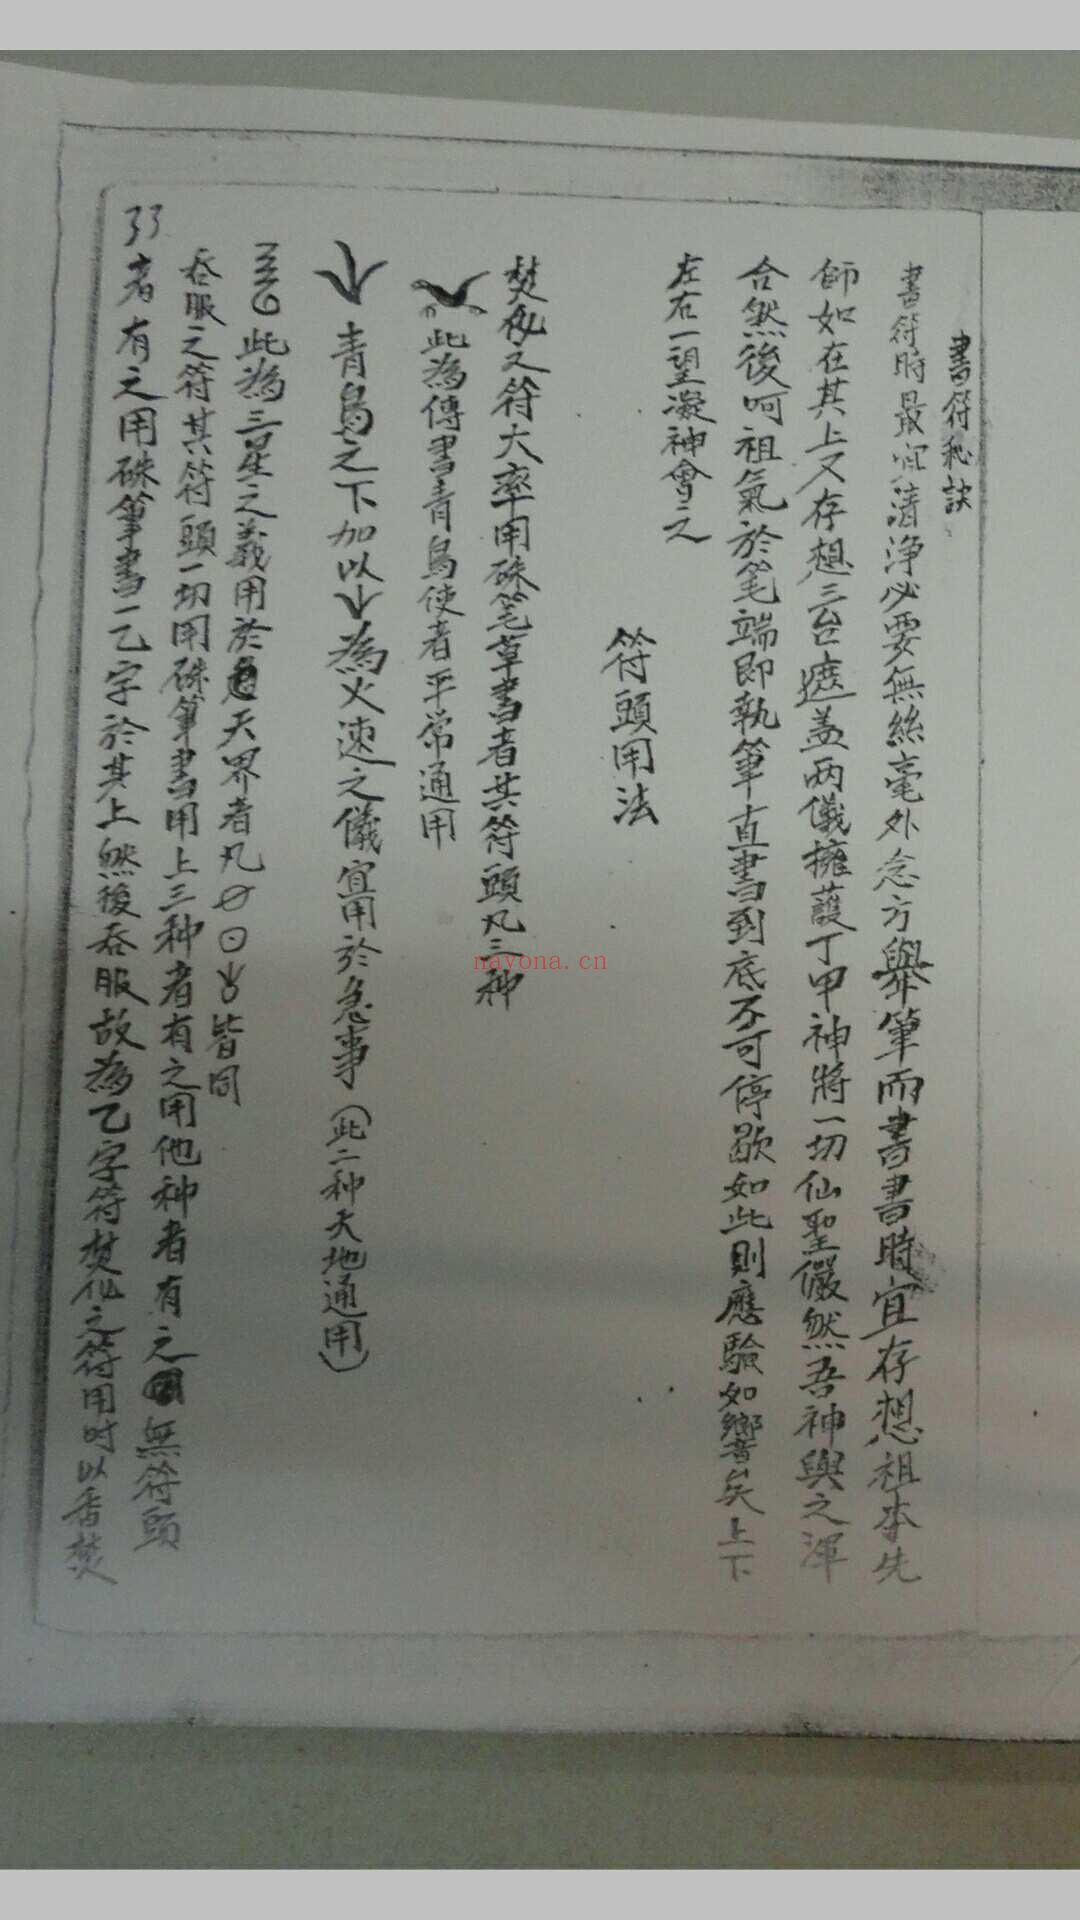 書符秘訣
書符時最宜清淨必要無絲毫外念方舉筆而書書時宜存想祖本先
師如在其上又存想三台遮盖兩儀擁護丁甲神將一切仙聖儼然吾神與之渾
合然後呵祖氣於笔端即執筆直書到底不可停歇如此則應驗如響矣上下
左右一望凝神會之
符頭用法
焚化之符大率用硃笔草書者其符頭凡三种
此為傳書青鳥使者平常通用
青鳥之下加以為火速之儀宜用於急事(此二种天地通用)
此為三星之義用於天界者凡皆同
吞服之符其符頭一切用硃筆書用上三种者有之用他种者有之無符頭
者有之用硃筆書一乙字於其上然後吞服故為乙字符焚化之符用时以香焚
33
nayona.cn